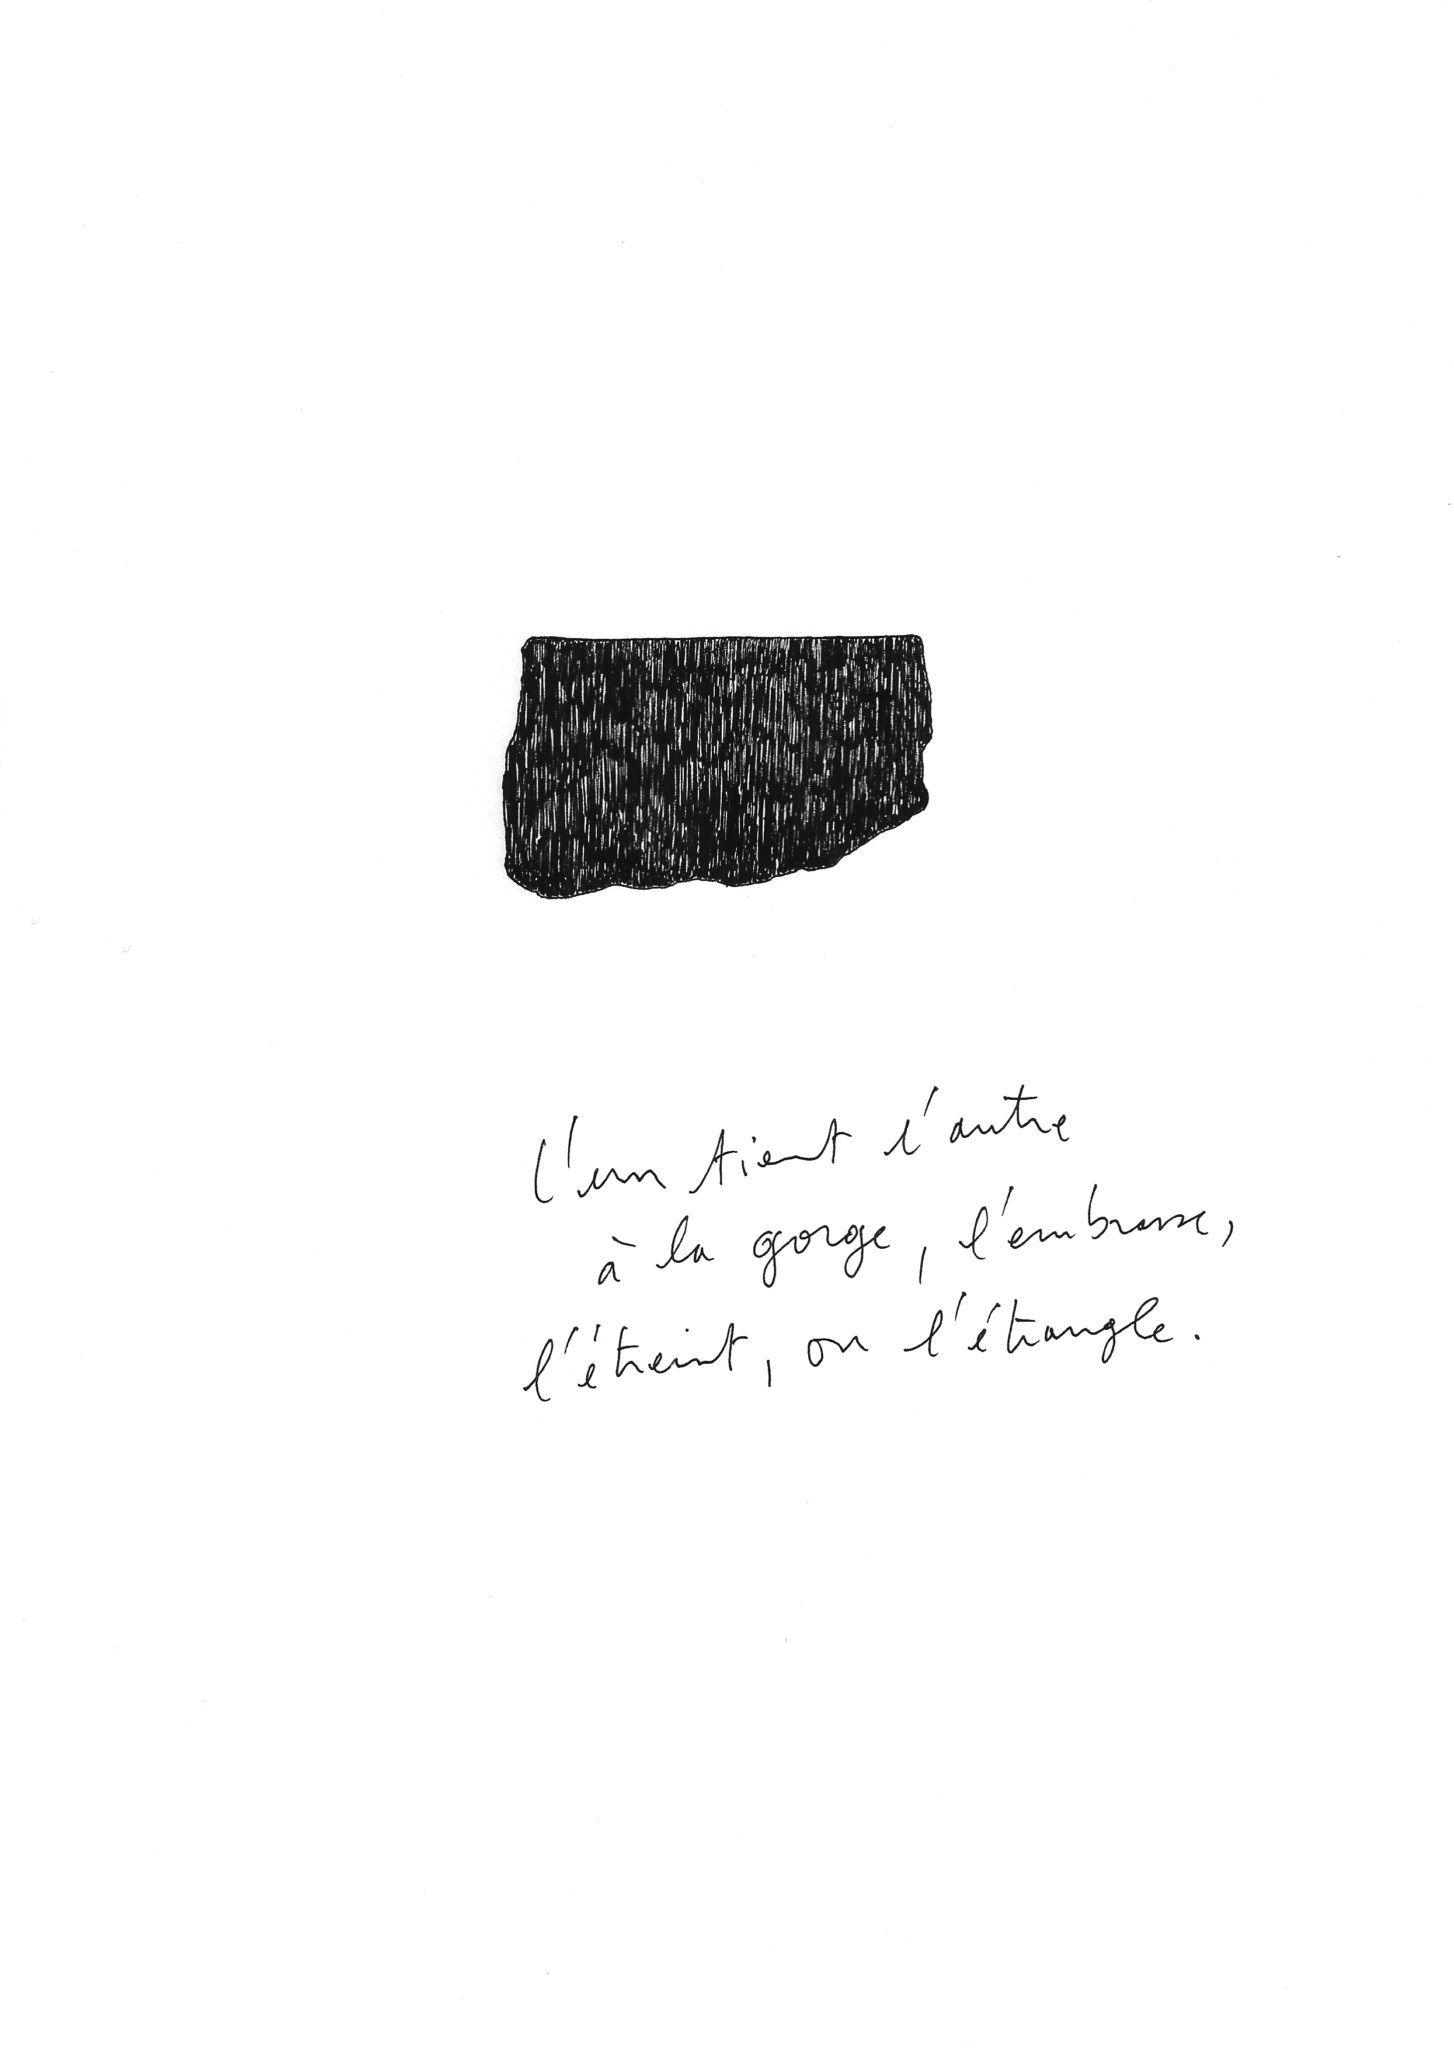 L'un tient l'autre
à la gorge, l'embrasse,
l'étreint, ou l'étrangle.